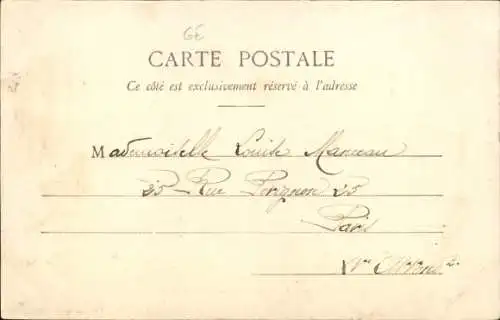 GE
CARTE POSTALE
Ce côté est exclusivement réservé à l'adresse
Mademoiselle Louise Marceau
25 Rue Perignon 25
Paris